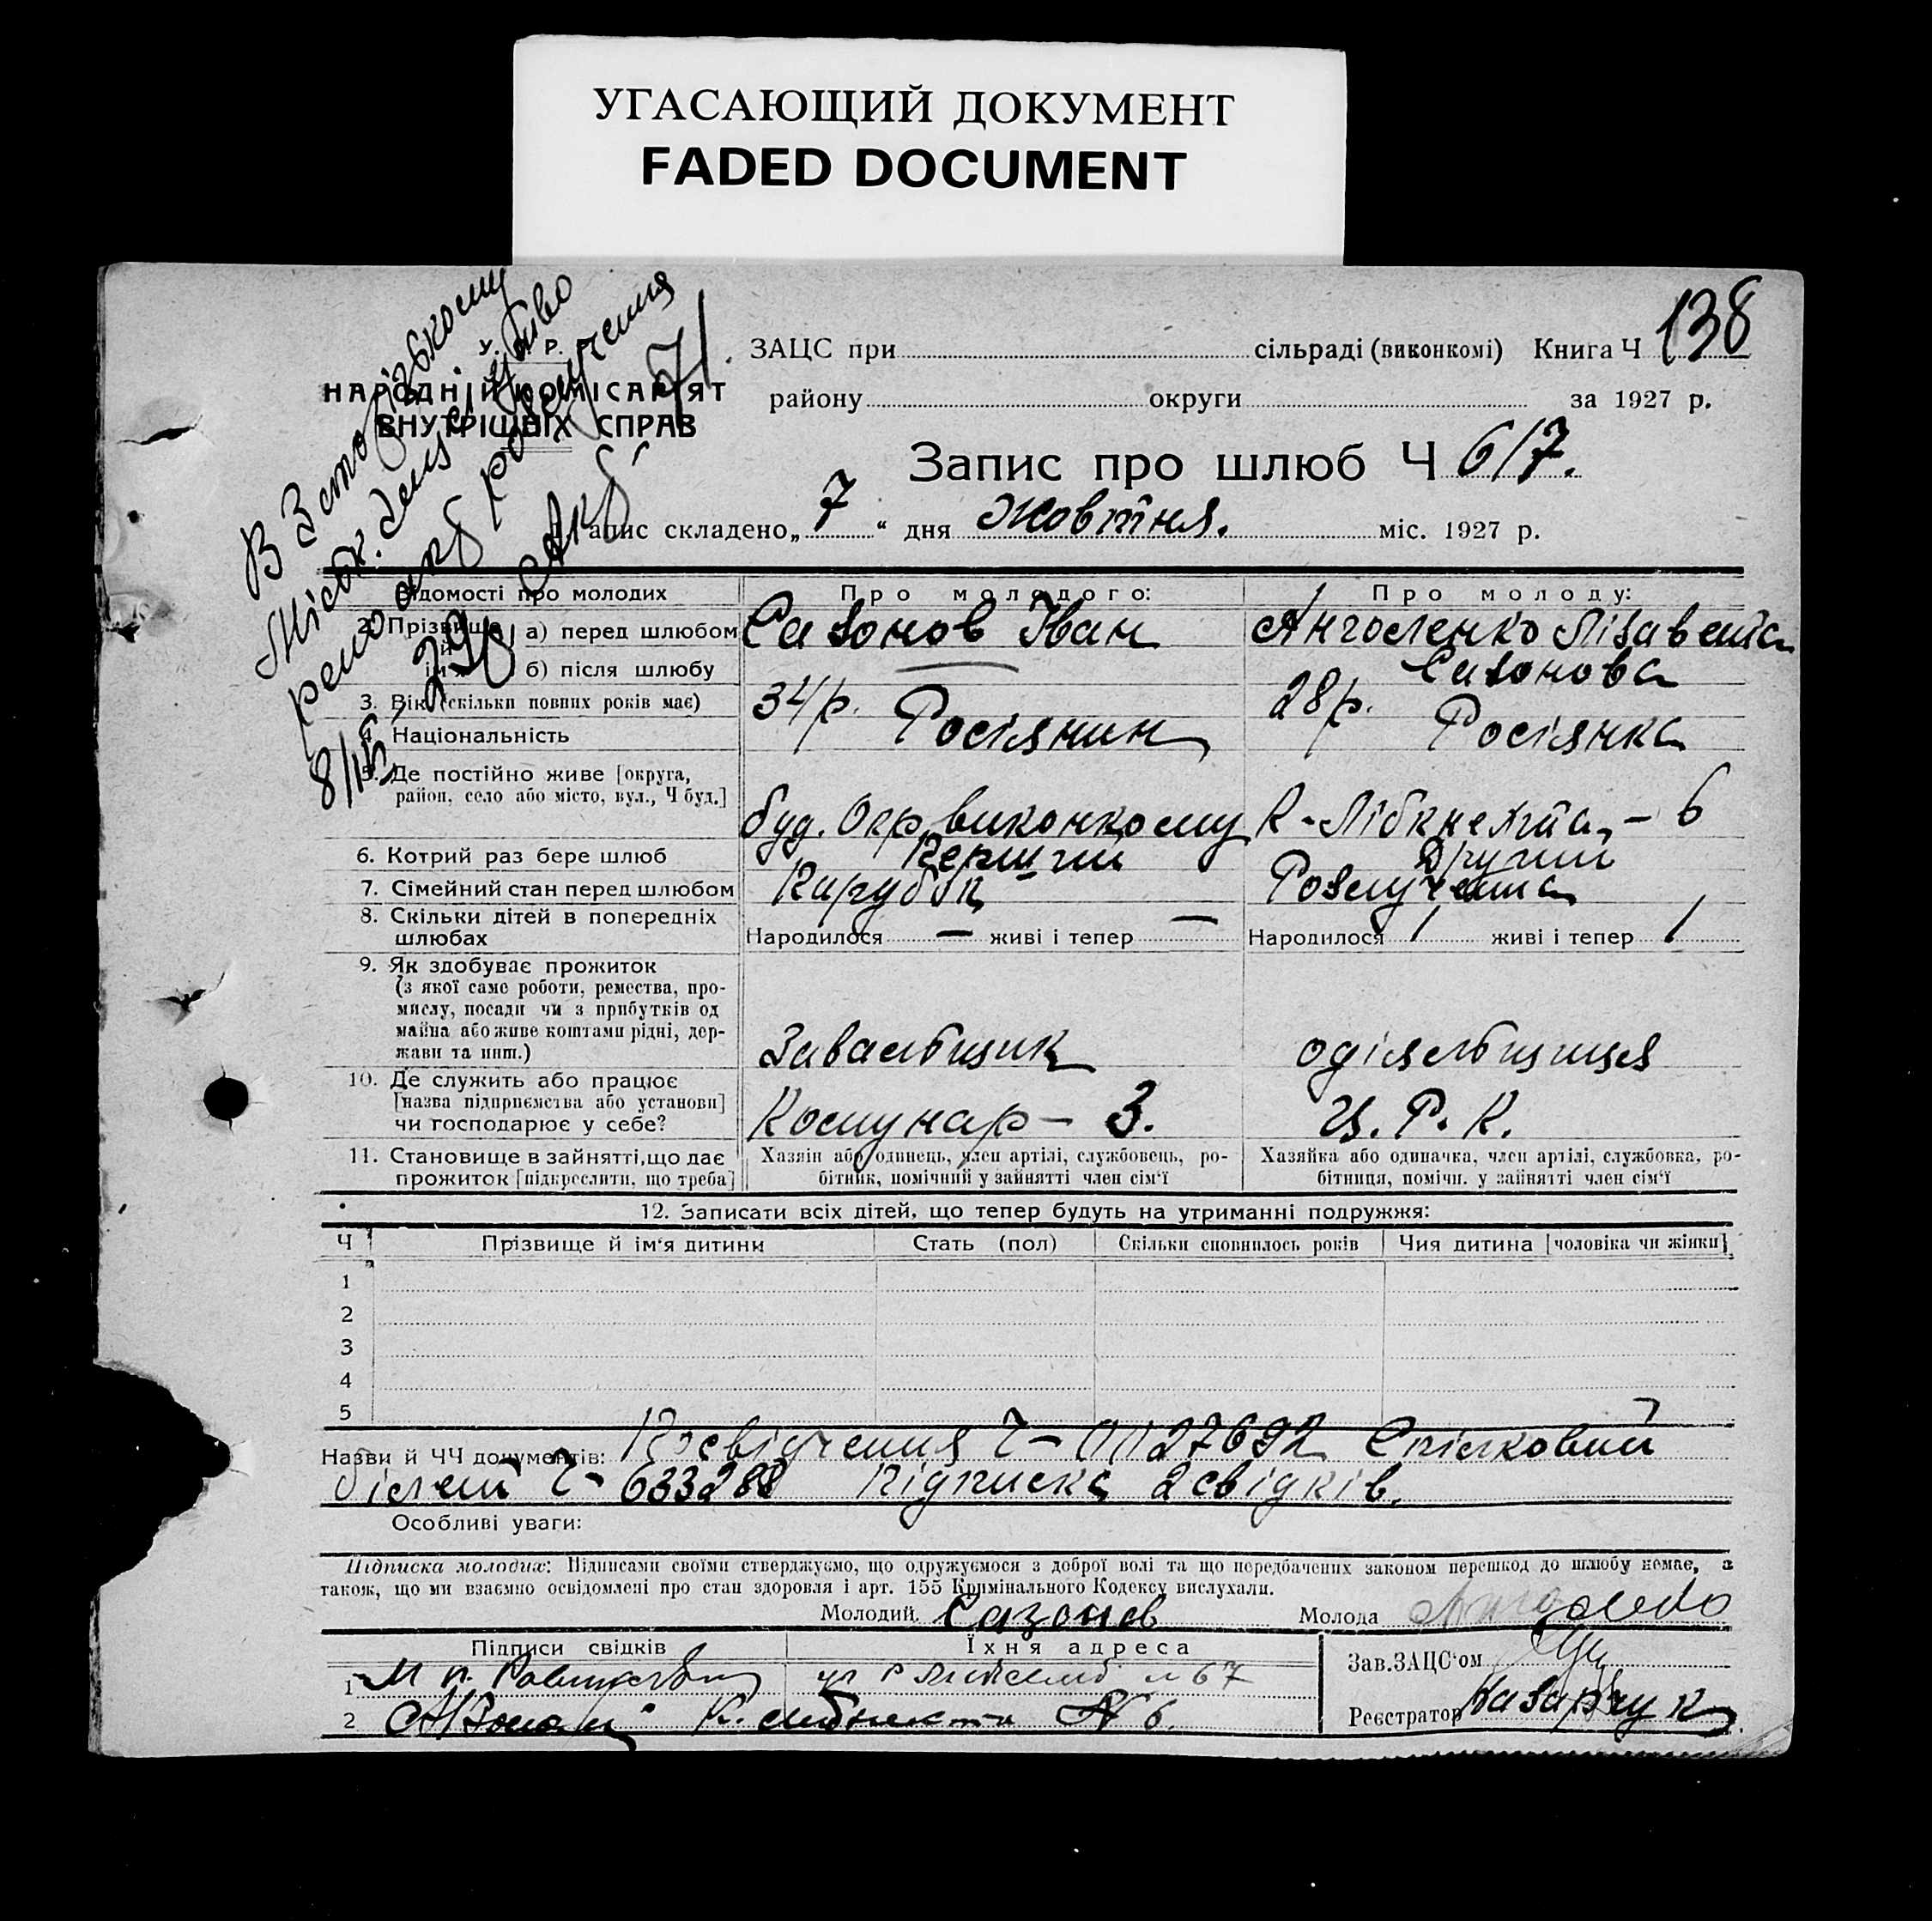 УГАСАЮЩИЙ ДОКУМЕНТ
FADED DOCUMENT
138
В Запорізькому
Міськ. 
розлучення
71.
8/III 29
У. Р.
НАРОДНІЙ КОМІСАРІЯТ
ВНУТРІШНІХ СПРАВ
ЗАЦС при сільраді (виконкомі) Книга Ч
району округи за 1927 р.
Запис про шлюб Ч 617.
Запис складено „7“ дня Жовтня. міс. 1927 р.
Відомості про молодих
Про молодого:
Про молоду:
2. Прізвище й ім'я
а) перед шлюбом Сазонов Іван
б) після шлюбу — Сазонова
3. Вік (скільки повних років має) 34 р. 28 р.
4. Національність Росіянин Росіянка
5. Де постійно живе [округа,
район, село або місто, вул., Ч буд.]
буд. Окр. виконкому К-Лібкнехта, - 6
6. Котрий раз бере шлюб Перший Другий
7. Сімейний стан перед шлюбом Парубок Розлучена
8. Скільки дітей в попередніх
шлюбах
Народилося — живі і тепер — Народилося 1 живі і тепер 1
9. Як здобуває прожиток
(з якої саме роботи, ремества, про-
мислу, посади чи з прибутків од
майна або живе коштами рідні, дер-
жави та инш.)
Завальщик
10. Де служить або працює
[назва підприємства або установи]
чи господарює у себе?
Комунар - 3. Ц. Р. К.
11. Становище в зайнятті, що дає
прожиток [підкреслити, що треба]
Хазяїн або одинець, член артілі, службовець, ро-
бітник, помічний у зайнятті член сім'ї
Хазяйка або одиначка, член артілі, службовка, ро-
бітниця, помічн. у зайнятті член сім'ї
12. Записати всіх дітей, що тепер будуть на утриманні подружжя:
Ч Прізвище й ім'я дитини Стать (пол) Скільки сповнилось років Чия дитина [чоловіка чи жінки]
1
2
3
4
5
Назви й ЧЧ документів: Посвідчення Ч- 27692 Спілковий
білет Ч- 633288 Підписка 2 свідків.
Особливі уваги:
Підписка молодих: Підписами своїми стверджуємо, що одружуємося з доброї волі та що передбачених законом перешкод до шлюбу немає, а
також, що ми взаємно освідомлені про стан здоровля і арт. 155 Кримінального Кодексу вислухали.
Молодий Сазонов Молода
Підписи свідків Їхня адреса
1 67
2 К. Лібкнехта № 6.
Зав. ЗАЦС'ом
Реєстратор Назарчук